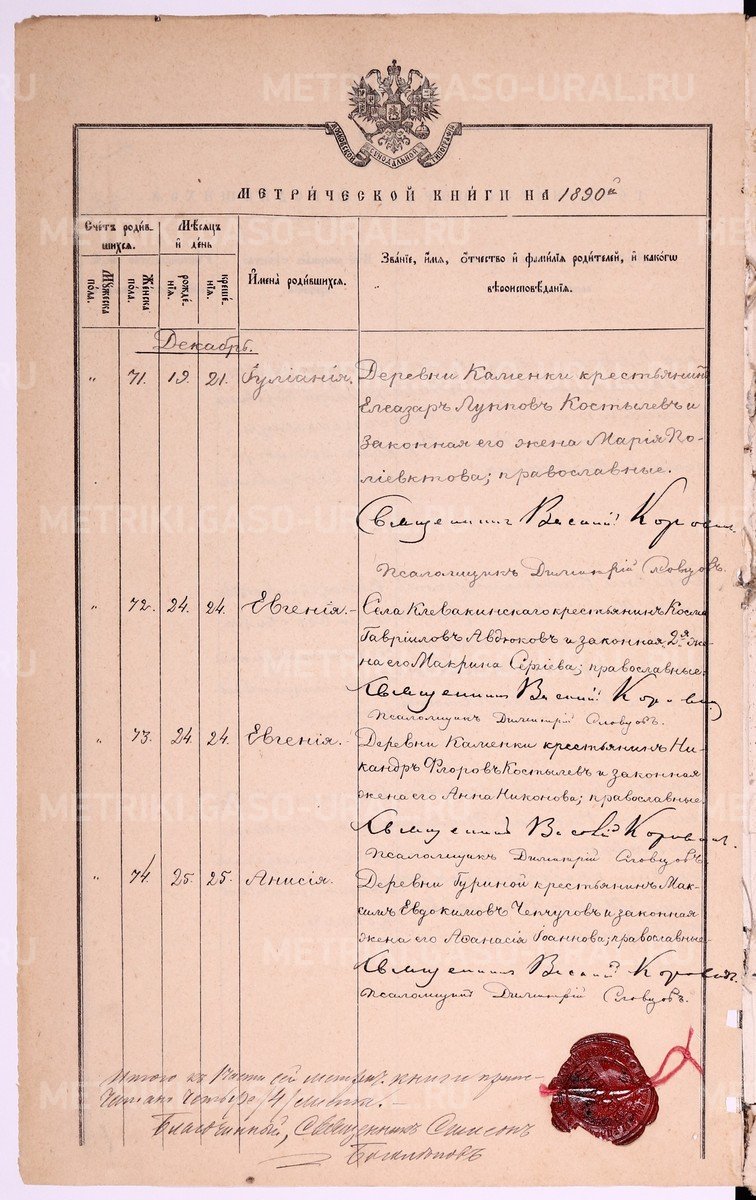 METRIKI.GASO-URAL.RU
МОСКОВСКОЙ СѴНОДАЛЬНОЙ ТИПОГРАФІИ
МЕТРИ́ЧЕСКОЙ КНИ́ГИ НА 1890й
Сче́тъ роди́в-
шихся.
Мѣ́сяцъ
и҆ де́нь
Мꙋ́жеска
по́ла.
Же́нска
по́ла.
рожде́-
нїя.
креще́-
нїя.
И҆мена̀ роди́вшихся.
Зва́нїе, и҆́мя, о҆́тчество и҆ фами́лїя роди́телей, и҆ како́гѡ
вѣроисповѣ́данїя.
Декабрь.
„ 71. 19. 21. Іуліанія. Деревни Каменки крестьянинъ
Елеазаръ Лупповъ Костылевъ и
законная его жена Марія По-
ліевктова; православные.
Священникъ Василій
Псаломщикъ Димитрій Словцовъ.
„ 72. 24. 24. Евгенія. Села Клевакинскаго крестьянинъ Косма
Гавріиловъ Авдюковъ и законная 2я же-
на его Макрина Сергіева; православные.
Священникъ Василій
Псаломщикъ Димитрій Словцовъ.
„ 73. 24. 24. Евгенія. Деревни Каменки крестьянинъ Ни-
кандръ Флоровъ Костылевъ и законная
жена его Анна Никонова; православные.
Священникъ Василій
Псаломщикъ Димитрій Словцовъ.
„ 74. 25. 25. Анисія. Деревни Гуриной крестьянинъ Мак-
симъ Евдокимовъ Чепчуговъ и законная
жена его Аѳанасія Іоаннова; православные.
Священникъ Василій
Псаломщикъ Димитрій Словцовъ.
Итого къ 1 части сей метрич. книги
четыре /4/ листа.
Благочинный, Священникъ